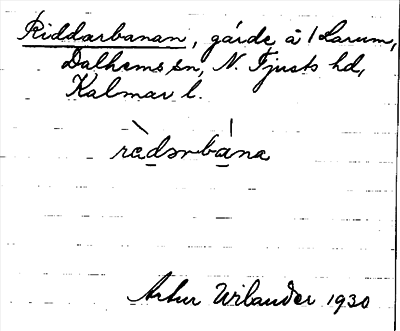 Riddarbanan, gärde å 1 Larum,
Dalhems sn, N. Tjusts hd,
Kalmar l.
rèdərbána
Artur Wilander 1930